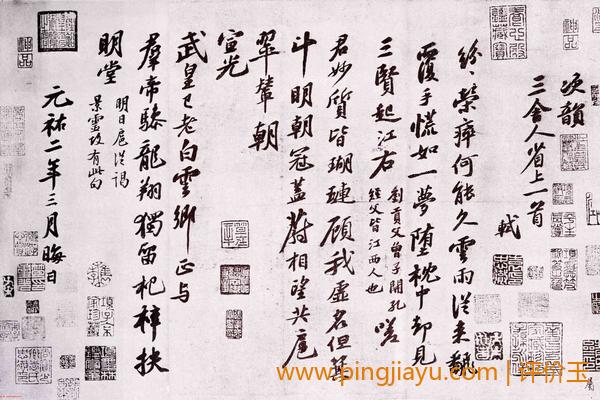 次韻
三舍人省上一首
軾
紛〻榮瘁何能久雲雨從來翻
覆手慌如一夢墮枕中却見
三賢起江右
劉貢父曾子開孔
經父皆江西人也
嗟
君妙質皆瑚璉顧我虛名但箕
斗明朝冠蓋蔚相望共扈
翠輦朝
宣光
武皇已老白雲鄉正與
羣帝驂龍翔獨留杞梓扶
明堂
明日扈從謁
景靈故有此句
元祐二年三月晦日
www.pingjiayu.com | 评价玉